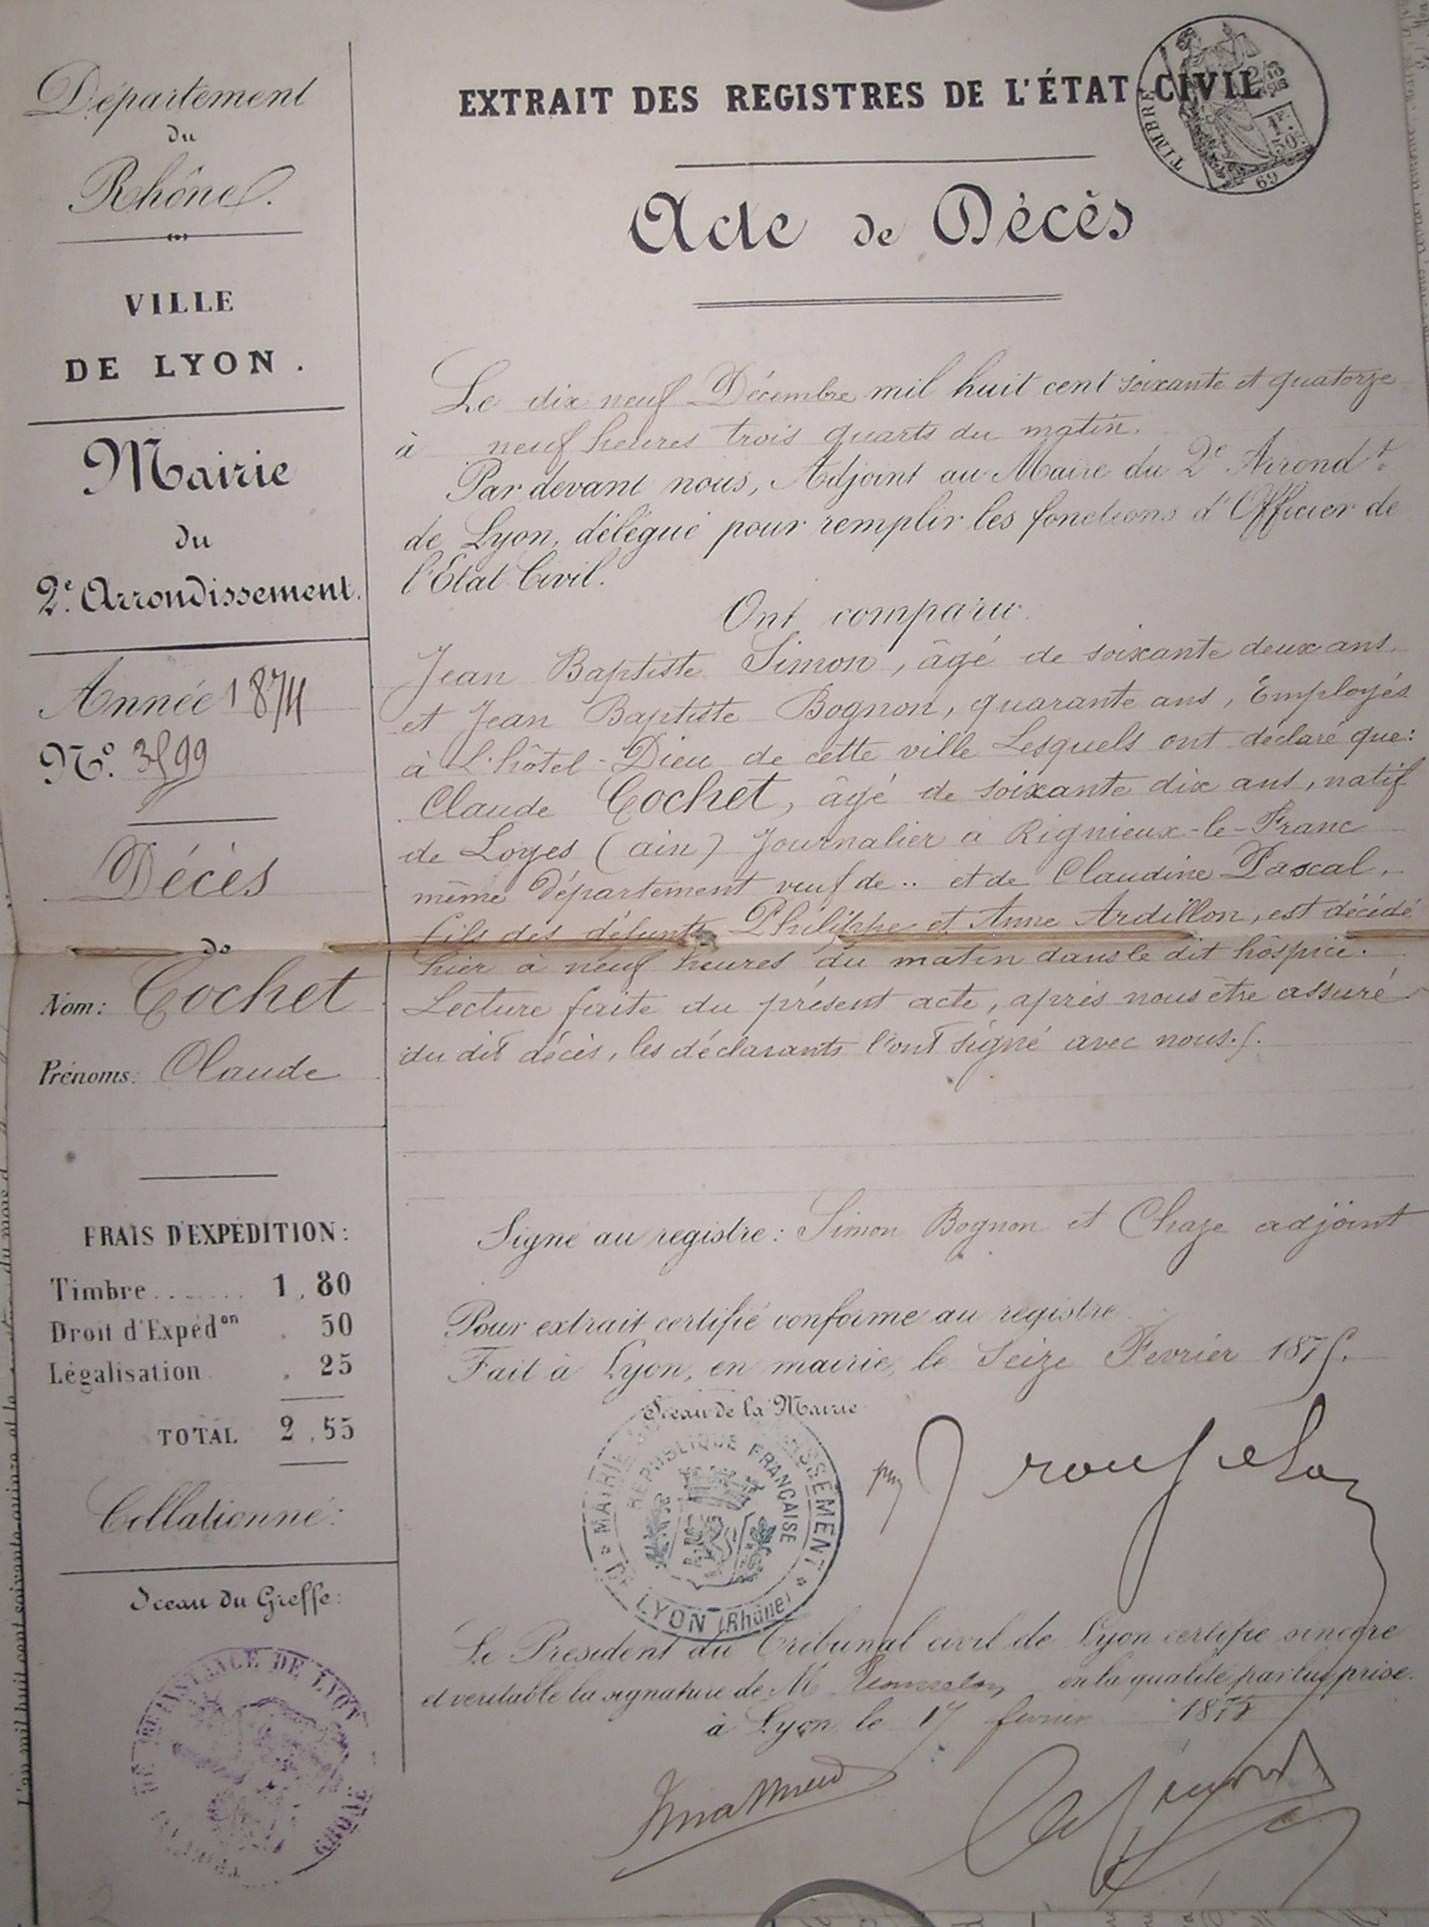 Département
du
Rhône.
VILLE
DE LYON.
Mairie
du
2e. Arrondissement.
Année 1874
No. 3599
Décès
de
Nom: Cochet
Prénoms: Claude
FRAIS D'EXPÉDITION:
Timbre....... 1,80
Droit d'Expédon . 50
Légalisation . 25
TOTAL 2,55
Collationné:
Sceau du Greffe:
DE LYON
RHÔNE
EXTRAIT DES REGISTRES DE L'ÉTAT-CIVIL
TIMBRE
2/10
1F. 50c
69
Acte de Décès
Le dix neuf Décembre mil huit cent soixante et quatorze
à neuf heures trois quarts du matin.
Par devant nous, Adjoint au Maire du 2e Arrondt.
de Lyon, délégué pour remplir les fonctions d'Officier de
l'Etat Civil.
Ont comparu
Jean Baptiste Simon, âgé de soixante deux ans
et Jean Baptiste Bognon, quarante ans, Employés
à L'hôtel-Dieu de cette ville Lesquels ont déclaré que:
Claude Cochet, âgé de soixante dix ans, natif
de Loyes (ain) Journalier à Rignieux-le-Franc
même Département veuf de .. et de Claudine Pascal,
fils des défunts Philippe et Anne Ardillon, est décédé
hier à neuf heures du matin dans le dit hôspice.
Lecture faite du présent acte, après nous être assuré
du dit décès, les déclarants l'ont signé avec nous./.
Signé au registre: Simon Bognon et Chaze adjoint
Pour extrait certifié conforme au registre
Fait à Lyon, en mairie, le Seize Fevrier 1875.
Sceau de la Mairie
MAIRIE DU ARRONDISSEMENT
RÉPUBLIQUE FRANÇAISE
DE LYON (Rhône)
Le President du Tribunal civil de Lyon certifie sincère
et veritable la signature de M en la qualité par lui prise.
à Lyon le 17 fevrier 1875